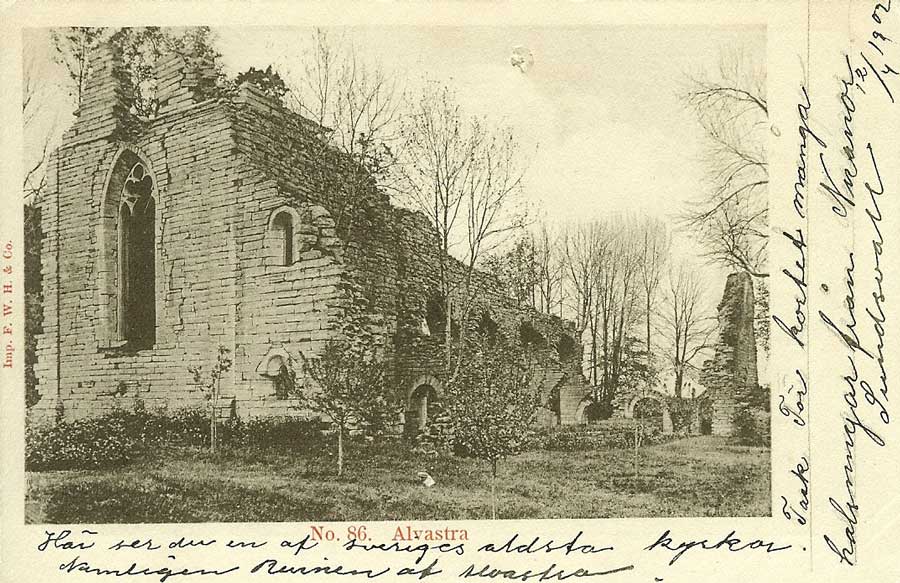 Imp. F. W. H. & Co.
No. 86. Alvastra
Här ser du en af Sveriges aldsta kyrkor.
Namligen Ruinen af Alvastra
Tack för kortet många
halsningar från
Sundsvall
12/4 1902